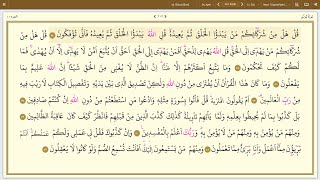 قُلْ هَلْ مِن شُرَكَائِكُم مَّن يَبْدَؤُا الْخَلْقَ ثُمَّ يُعِيدُهُ قُلِ اللَّهُ يَبْدَؤُا الْخَلْقَ ثُمَّ يُعِيدُهُ فَأَنَّى تُؤْفَكُونَ قُلْ هَلْ مِن
شُرَكَائِكُم مَّن يَهْدِي إِلَى الْحَقِّ قُلِ اللَّهُ يَهْدِي لِلْحَقِّ أَفَمَن يَهْدِي إِلَى الْحَقِّ أَحَقُّ أَن يُتَّبَعَ أَمَّن لَّا يَهِدِّي إِلَّا أَن يُهْدَى فَمَا
لَكُمْ كَيْفَ تَحْكُمُونَ وَمَا يَتَّبِعُ أَكْثَرُهُمْ إِلَّا ظَنًّا إِنَّ الظَّنَّ لَا يُغْنِي مِنَ الْحَقِّ شَيْئًا إِنَّ اللَّهَ عَلِيمٌ بِمَا
يَفْعَلُونَ وَمَا كَانَ هَذَا الْقُرْآنُ أَن يُفْتَرَى مِن دُونِ اللَّهِ وَلَكِن تَصْدِيقَ الَّذِي بَيْنَ يَدَيْهِ وَتَفْصِيلَ الْكِتَابِ لَا رَيْبَ فِيهِ
مِن رَّبِّ الْعَالَمِينَ أَمْ يَقُولُونَ افْتَرَاهُ قُلْ فَأْتُوا بِسُورَةٍ مِّثْلِهِ وَادْعُوا مَنِ اسْتَطَعْتُم مِّن دُونِ اللَّهِ إِن كُنتُمْ صَادِقِينَ
بَلْ كَذَّبُوا بِمَا لَمْ يُحِيطُوا بِعِلْمِهِ وَلَمَّا يَأْتِهِمْ تَأْوِيلُهُ كَذَلِكَ كَذَّبَ الَّذِينَ مِن قَبْلِهِمْ فَانظُرْ كَيْفَ كَانَ عَاقِبَةُ الظَّالِمِينَ
وَمِنْهُم مَّن يُؤْمِنُ بِهِ وَمِنْهُم مَّن لَّا يُؤْمِنُ بِهِ وَرَبُّكَ أَعْلَمُ بِالْمُفْسِدِينَ وَإِن كَذَّبُوكَ فَقُل لِّي عَمَلِي وَلَكُمْ عَمَلُكُمْ أَنتُم
بَرِيئُونَ مِمَّا أَعْمَلُ وَأَنَا بَرِيءٌ مِّمَّا تَعْمَلُونَ وَمِنْهُم مَّن يَسْتَمِعُونَ إِلَيْكَ أَفَأَنتَ تُسْمِعُ الصُّمَّ وَلَوْ كَانُوا لَا يَعْقِلُونَ